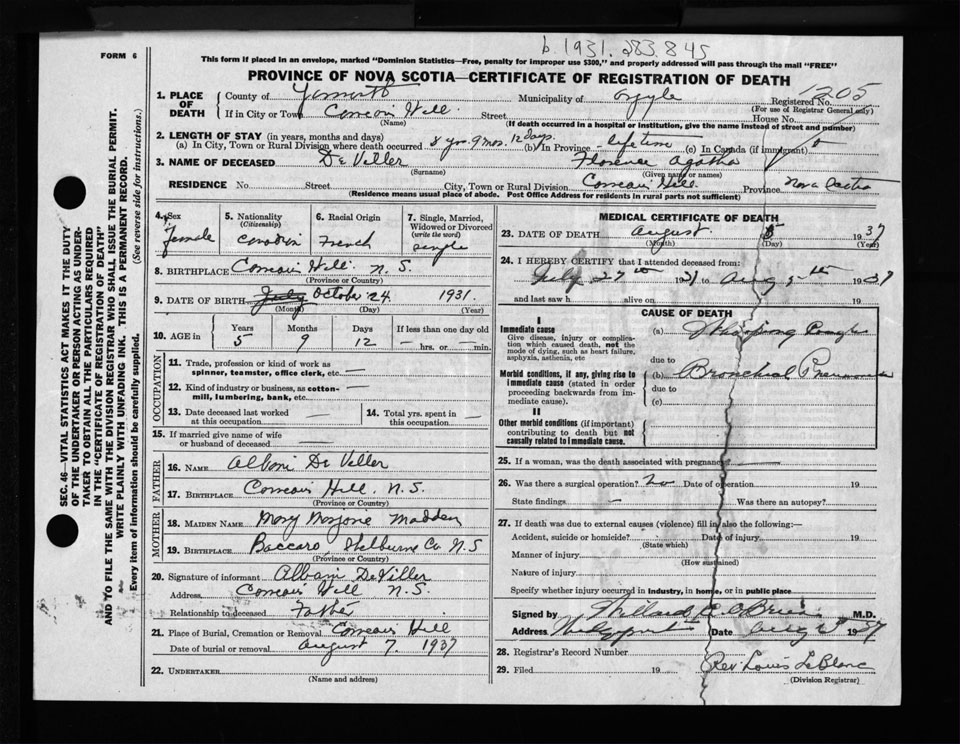 b. 1931. 283.845
FORM 6
This form if placed in an envelope, marked "Dominion Statistics—Free, penalty for improper use $300," and properly addressed will pass through the mail "FREE"
PROVINCE OF NOVA SCOTIA—CERTIFICATE OF REGISTRATION OF DEATH
1205
1. PLACE OF DEATH County of Yarmouth Municipality of Argyle Registered No.
(For use of Registrar General only)
If in City or Town Comeau's Hill. Street House No.
(Name) (If death occurred in a hospital or institution, give the name instead of street and number)
2. LENGTH OF STAY (in years, months and days)
(a) In City, Town or Rural Division where death occurred 5 yrs. 9 mos. 12 days. (b) In Province lifetime (c) In Canada (if immigrant)
3. NAME OF DECEASED De Viller Florence Agatha
(Surname) (Given name or names)
RESIDENCE No. Street City, Town or Rural Division Comeau's Hill. Province Nova Scotia
(Residence means usual place of abode. Post Office Address for residents in rural parts not sufficient)
4. Sex Female
5. Nationality (Citizenship) Canadian
6. Racial Origin French
7. Single, Married, Widowed or Divorced (write the word) single
8. BIRTHPLACE Comeau's Hill. N.S.
(Province or Country)
9. DATE OF BIRTH July October 24 1931.
(Month) (Day) (Year)
10. AGE in Years Months Days If less than one day old
5 9 12 — hrs. or — min.
OCCUPATION
11. Trade, profession or kind of work as spinner, teamster, office clerk, etc. —
12. Kind of industry or business, as cotton-mill, lumbering, bank, etc. —
13. Date deceased last worked at this occupation —
14. Total yrs. spent in this occupation —
15. If married give name of wife or husband of deceased —
FATHER
16. NAME Albani De Viller
17. BIRTHPLACE Comeau's Hill. N.S.
(Province or Country)
MOTHER
18. MAIDEN NAME Mary Marjorie Madden
19. BIRTHPLACE Baccaro, Shelburne Co. N.S
(Province or Country)
20. Signature of informant Albani DeViller
Address Comeau's Hill N.S.
Relationship to deceased Father
21. Place of Burial, Cremation or Removal Comeau's Hill
Date of burial or removal August 7. 1937
22. UNDERTAKER
(Name and address)
MEDICAL CERTIFICATE OF DEATH
23. DATE OF DEATH August 5 1937
(Month) (Day) (Year)
24. I HEREBY CERTIFY that I attended deceased from:
July 27th 1937 to Aug 5th 1937
and last saw h alive on 19
CAUSE OF DEATH
I
Immediate cause (a) Whooping Cough
Give disease, injury or complication which caused death, not the mode of dying, such as heart failure, asphyxia, asthenia, etc
due to
Morbid conditions, if any, giving rise to immediate cause (stated in order proceeding backwards from immediate cause).
(b) Bronchial Pneumonia
due to
(c)
II
Other morbid conditions (if important) contributing to death but not causally related to immediate cause.
25. If a woman, was the death associated with pregnancy? —
26. Was there a surgical operation? No Date of operation 19
State findings — Was there an autopsy?
27. If death was due to external causes (violence) fill in also the following:—
Accident, suicide or homicide? Date of injury 19
(State which)
Manner of injury
(How sustained)
Nature of injury
Specify whether injury occurred in industry, in home, or in public place
Signed by Willard C. O'Brien M.D.
Address Wedgeport Date 1937
28. Registrar's Record Number
29. Filed 19 Rev Louis LeBlanc
(Division Registrar)
SEC. 46—VITAL STATISTICS ACT MAKES IT THE DUTY
OF THE UNDERTAKER OR PERSON ACTING AS UNDER-
TAKER TO OBTAIN ALL THE PARTICULARS REQUIRED
IN THE "CERTIFICATE OF REGISTRATION OF DEATH"
AND TO FILE THE SAME WITH THE DIVISION REGISTRAR WHO SHALL ISSUE THE BURIAL PERMIT.
WRITE PLAINLY WITH UNFADING INK. THIS IS A PERMANENT RECORD.
Every item of information should be carefully supplied. (See reverse side for instructions.)